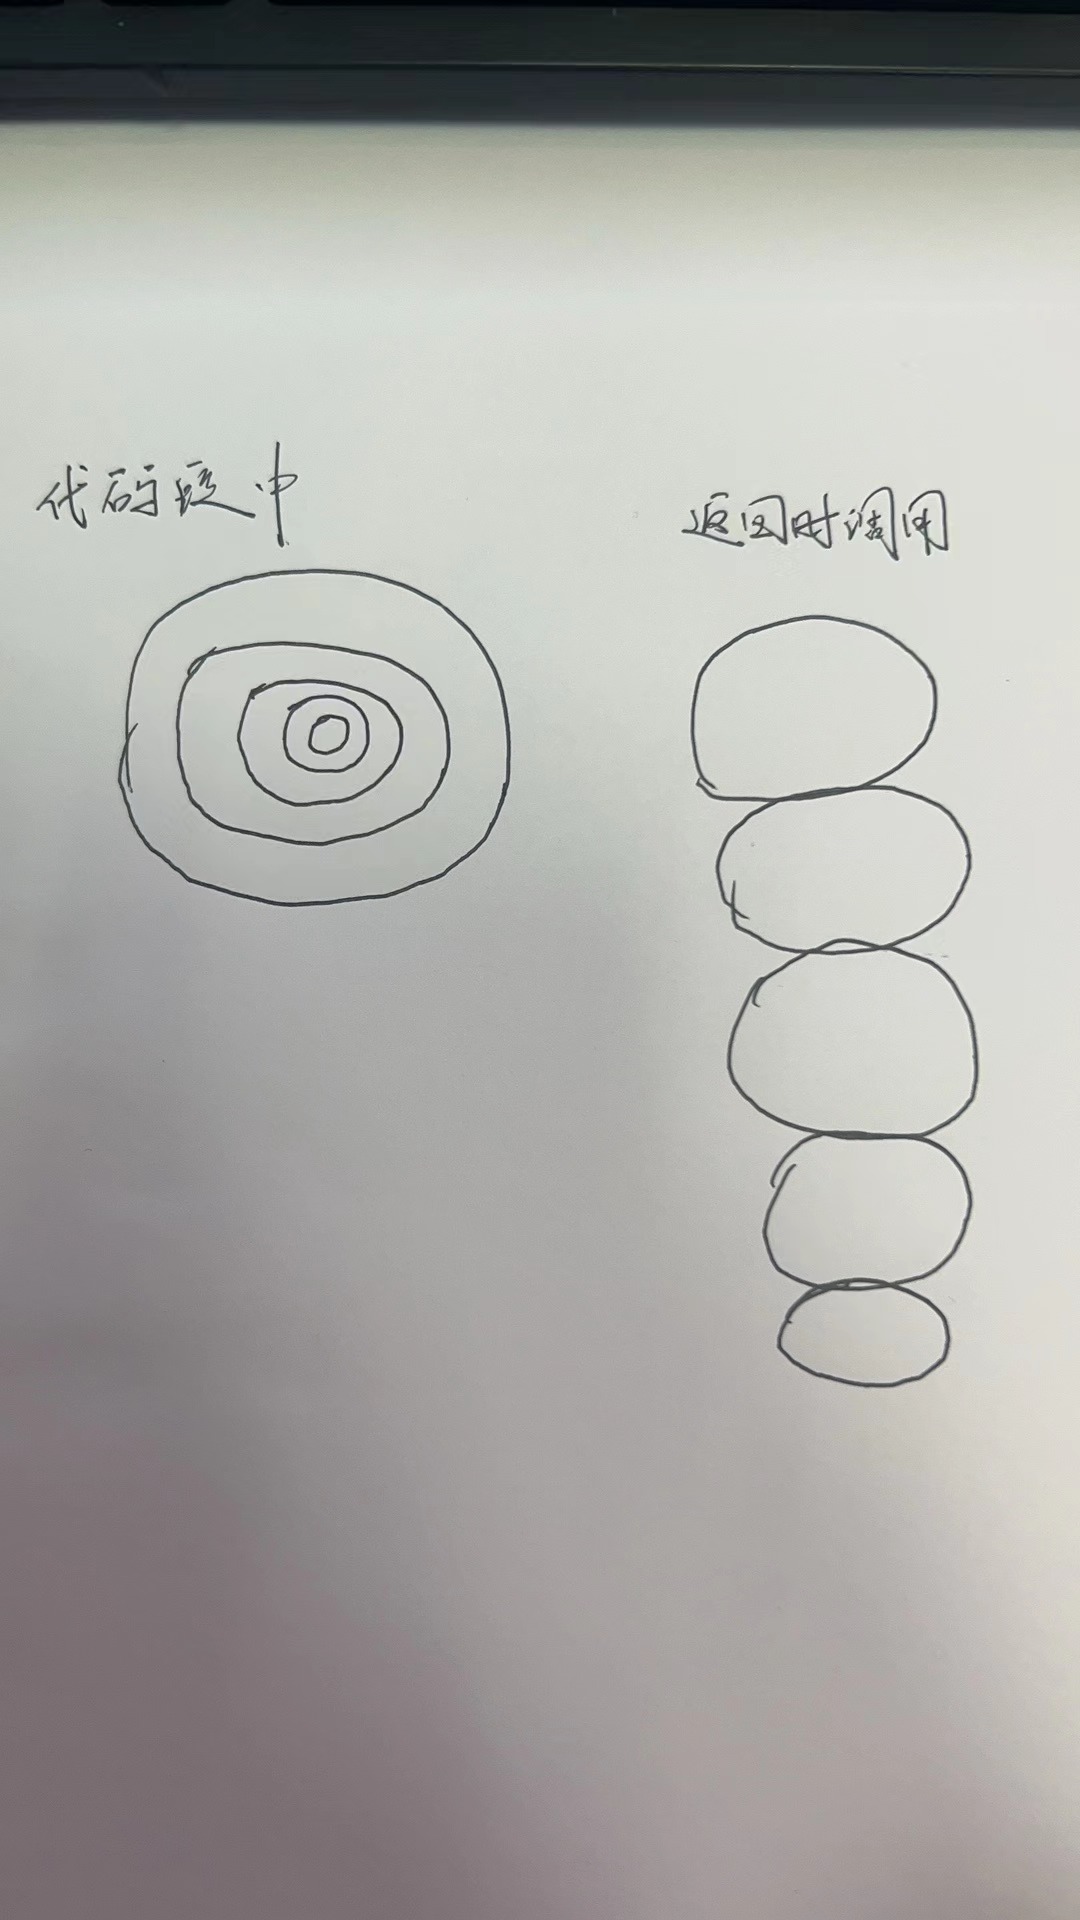 代码段中
返回时调用